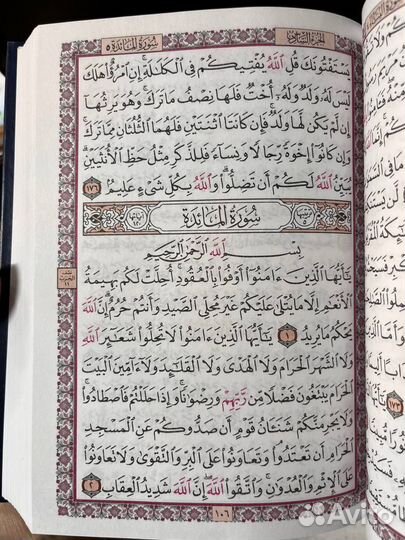 سُورَةُ المَائِدَةِ ٥
الجُزءُ السَّادِسُ
يَسۡتَفۡتُونَكَ قُلِ ٱللَّهُ يُفۡتِيكُمۡ فِي ٱلۡكَلَٰلَةِۚ إِنِ ٱمۡرُؤٌاْ هَلَكَ
لَيۡسَ لَهُۥ وَلَدٞ وَلَهُۥٓ أُخۡتٞ فَلَهَا نِصۡفُ مَا تَرَكَۚ وَهُوَ يَرِثُهَآ
إِن لَّمۡ يَكُن لَّهَا وَلَدٞۚ فَإِن كَانَتَا ٱثۡنَتَيۡنِ فَلَهُمَا ٱلثُّلُثَانِ مِمَّا تَرَكَۚ
وَإِن كَانُوٓاْ إِخۡوَةٗ رِّجَالٗا وَنِسَآءٗ فَلِلذَّكَرِ مِثۡلُ حَظِّ ٱلۡأُنثَيَيۡنِۗ
يُبَيِّنُ ٱللَّهُ لَكُمۡ أَن تَضِلُّواْۗ وَٱللَّهُ بِكُلِّ شَيۡءٍ عَلِيمُۢ ١٧٦
سُورَةُ المَائِدَةِ
بِسۡمِ ٱللَّهِ ٱلرَّحۡمَٰنِ ٱلرَّحِيمِ
يَٰٓأَيُّهَا ٱلَّذِينَ ءَامَنُوٓاْ أَوۡفُواْ بِٱلۡعُقُودِۚ أُحِلَّتۡ لَكُم بَهِيمَةُ
ٱلۡأَنۡعَٰمِ إِلَّا مَا يُتۡلَىٰ عَلَيۡكُمۡ غَيۡرَ مُحِلِّي ٱلصَّيۡدِ وَأَنتُمۡ حُرُمٌۗ إِنَّ ٱللَّهَ
يَحۡكُمُ مَا يُرِيدُ ١ يَٰٓأَيُّهَا ٱلَّذِينَ ءَامَنُواْ لَا تُحِلُّواْ شَعَٰٓئِرَ ٱللَّهِ
وَلَا ٱلشَّهۡرَ ٱلۡحَرَامَ وَلَا ٱلۡهَدۡيَ وَلَا ٱلۡقَلَٰٓئِدَ وَلَآ ءَآمِّينَ ٱلۡبَيۡتَ
ٱلۡحَرَامَ يَبۡتَغُونَ فَضۡلٗا مِّن رَّبِّهِمۡ وَرِضۡوَٰنٗاۚ وَإِذَا حَلَلۡتُمۡ فَٱصۡطَادُواْۚ
وَلَا يَجۡرِمَنَّكُمۡ شَنَـَٔانُ قَوۡمٍ أَن صَدُّوكُمۡ عَنِ ٱلۡمَسۡجِدِ
ٱلۡحَرَامِ أَن تَعۡتَدُواْۘ وَتَعَاوَنُواْ عَلَى ٱلۡبِرِّ وَٱلتَّقۡوَىٰۖ وَلَا تَعَاوَنُواْ
عَلَى ٱلۡإِثۡمِ وَٱلۡعُدۡوَٰنِۚ وَٱتَّقُواْ ٱللَّهَۖ إِنَّ ٱللَّهَ شَدِيدُ ٱلۡعِقَابِ ٢
١٠٦
Avito